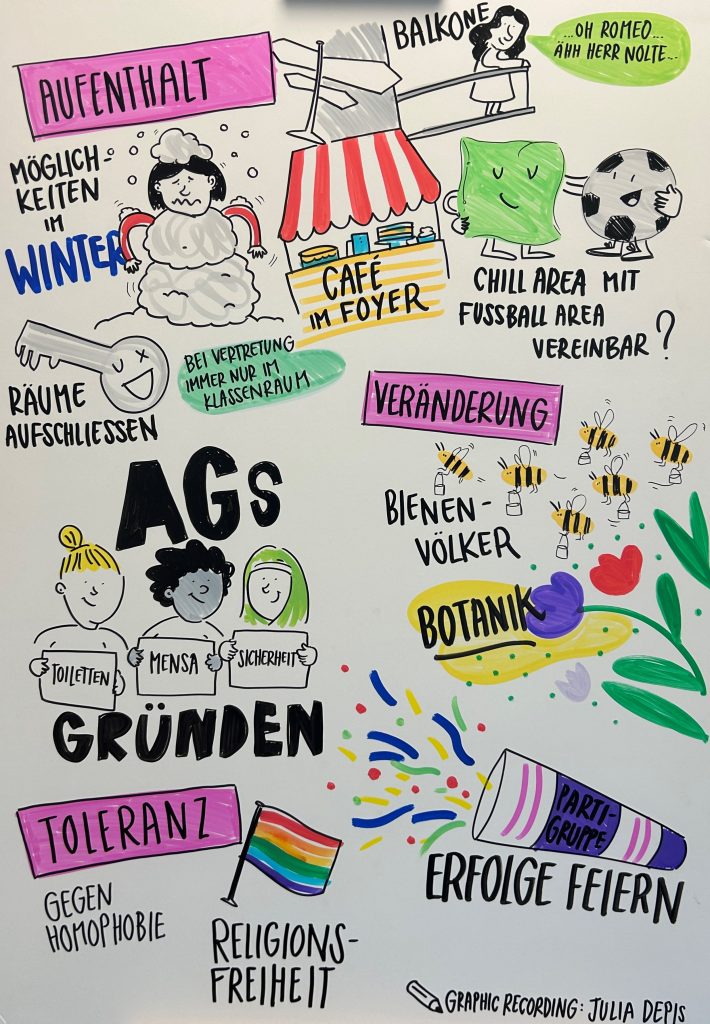 AUFENTHALT
MÖGLICH-
KEITEN
IM
WINTER
BALKONE
...OH ROMEO...
ÄHH HERR NOLTE...
CAFÉ
IM FOYER
CHILL AREA MIT
FUSSBALL AREA
VEREINBAR?
RÄUME
AUFSCHLIESSEN
BEI VERTRETUNG
IMMER NUR IM
KLASSENRAUM
VERÄNDERUNG
BIENEN-
VÖLKER
BOTANIK
AGs
TOILETTEN
MENSA
SICHERHEIT
GRÜNDEN
PARTI-
GRUPPE
ERFOLGE FEIERN
TOLERANZ
GEGEN
HOMOPHOBIE
RELIGIONS-
FREIHEIT
GRAPHIC RECORDING: JULIA DEPIS